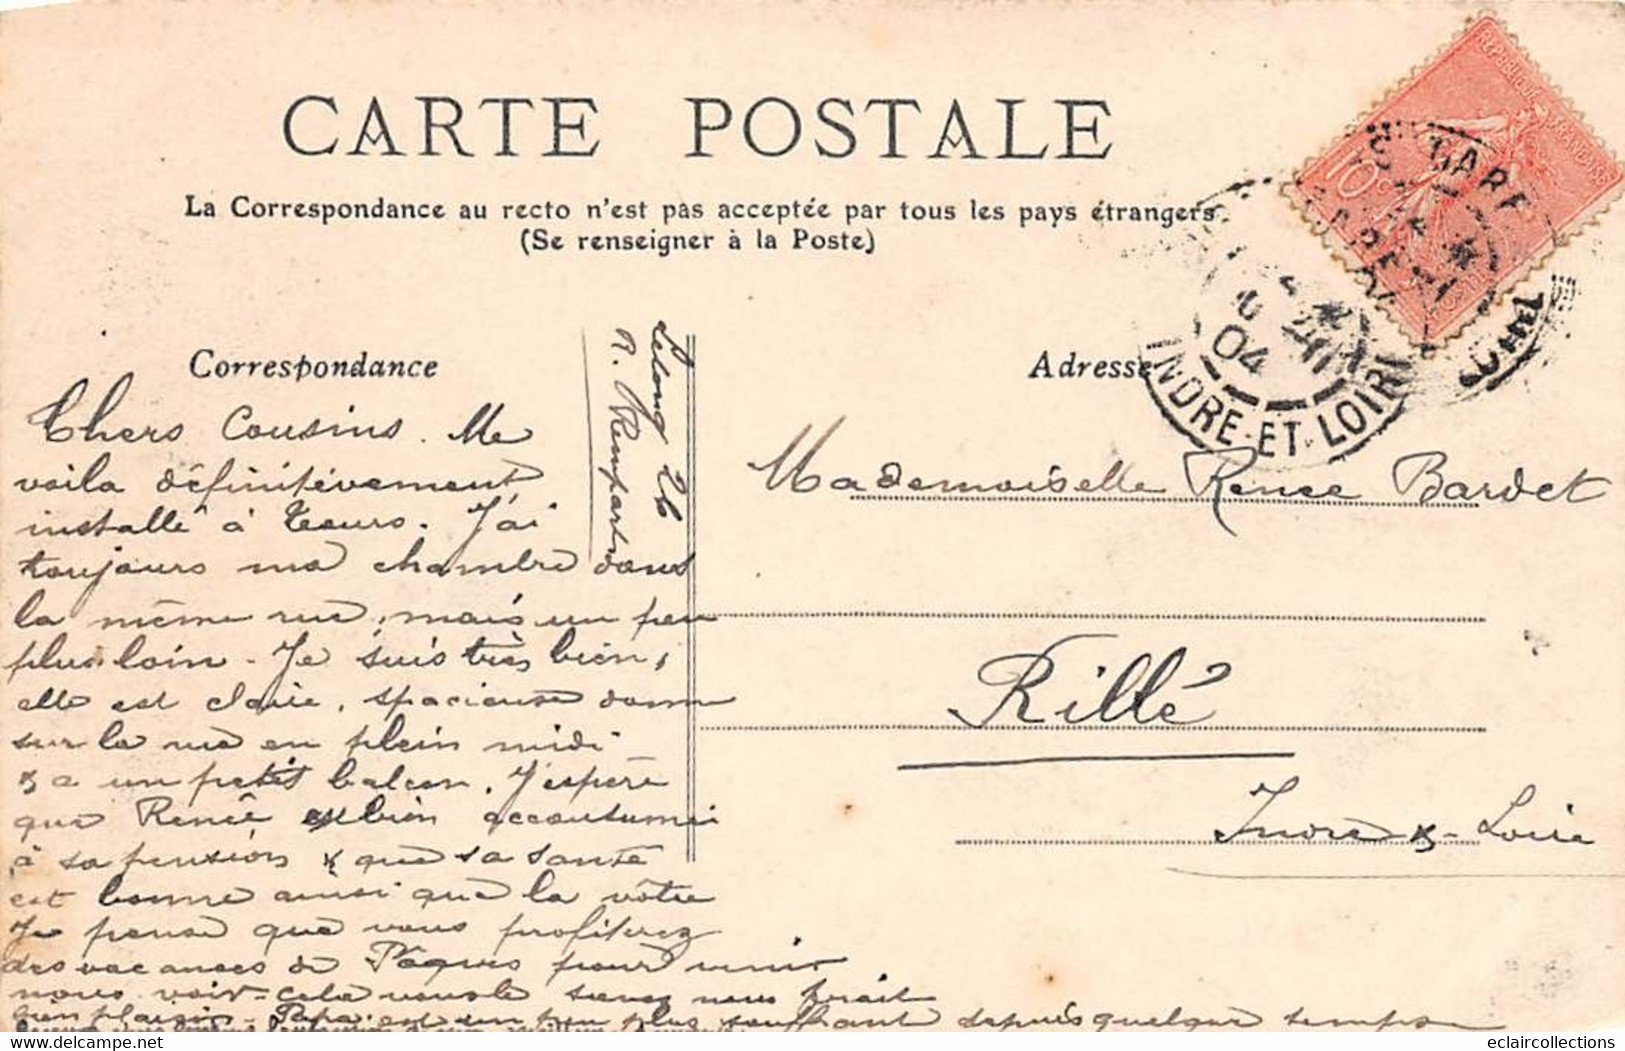 CARTE POSTALE
La Correspondance au recto n'est pas acceptée par tous les pays étrangers
(Se renseigner à la Poste)
REPUBLIQUE FRANÇAISE
10c
GARE
04
INDRE-ET-LOIRE
Correspondance
Adresse
Lelong 26
R. Remparts
Chers Cousins. Me
voila définitivement
installé à Tours. J'ai
toujours ma chambre dans
la même rue, mais un peu
plus loin - Je suis très bien,
elle est claire, spacieuse donne
sur la rue en plein midi
& a un petit balcon. J'espère
que Renée est bien accoutumée
à sa pension & que sa santé
est bonne ainsi que la vôtre
Je pense que vous profiterez
des vacances de Pâques pour venir
nous voir - cela nous ferait
bien plaisir - Papa est un peu plus souffrant depuis quelque temps
Mademoiselle Renee Bardet
Rillé
Indre & - Loire
eclaircollections@delcampe.net